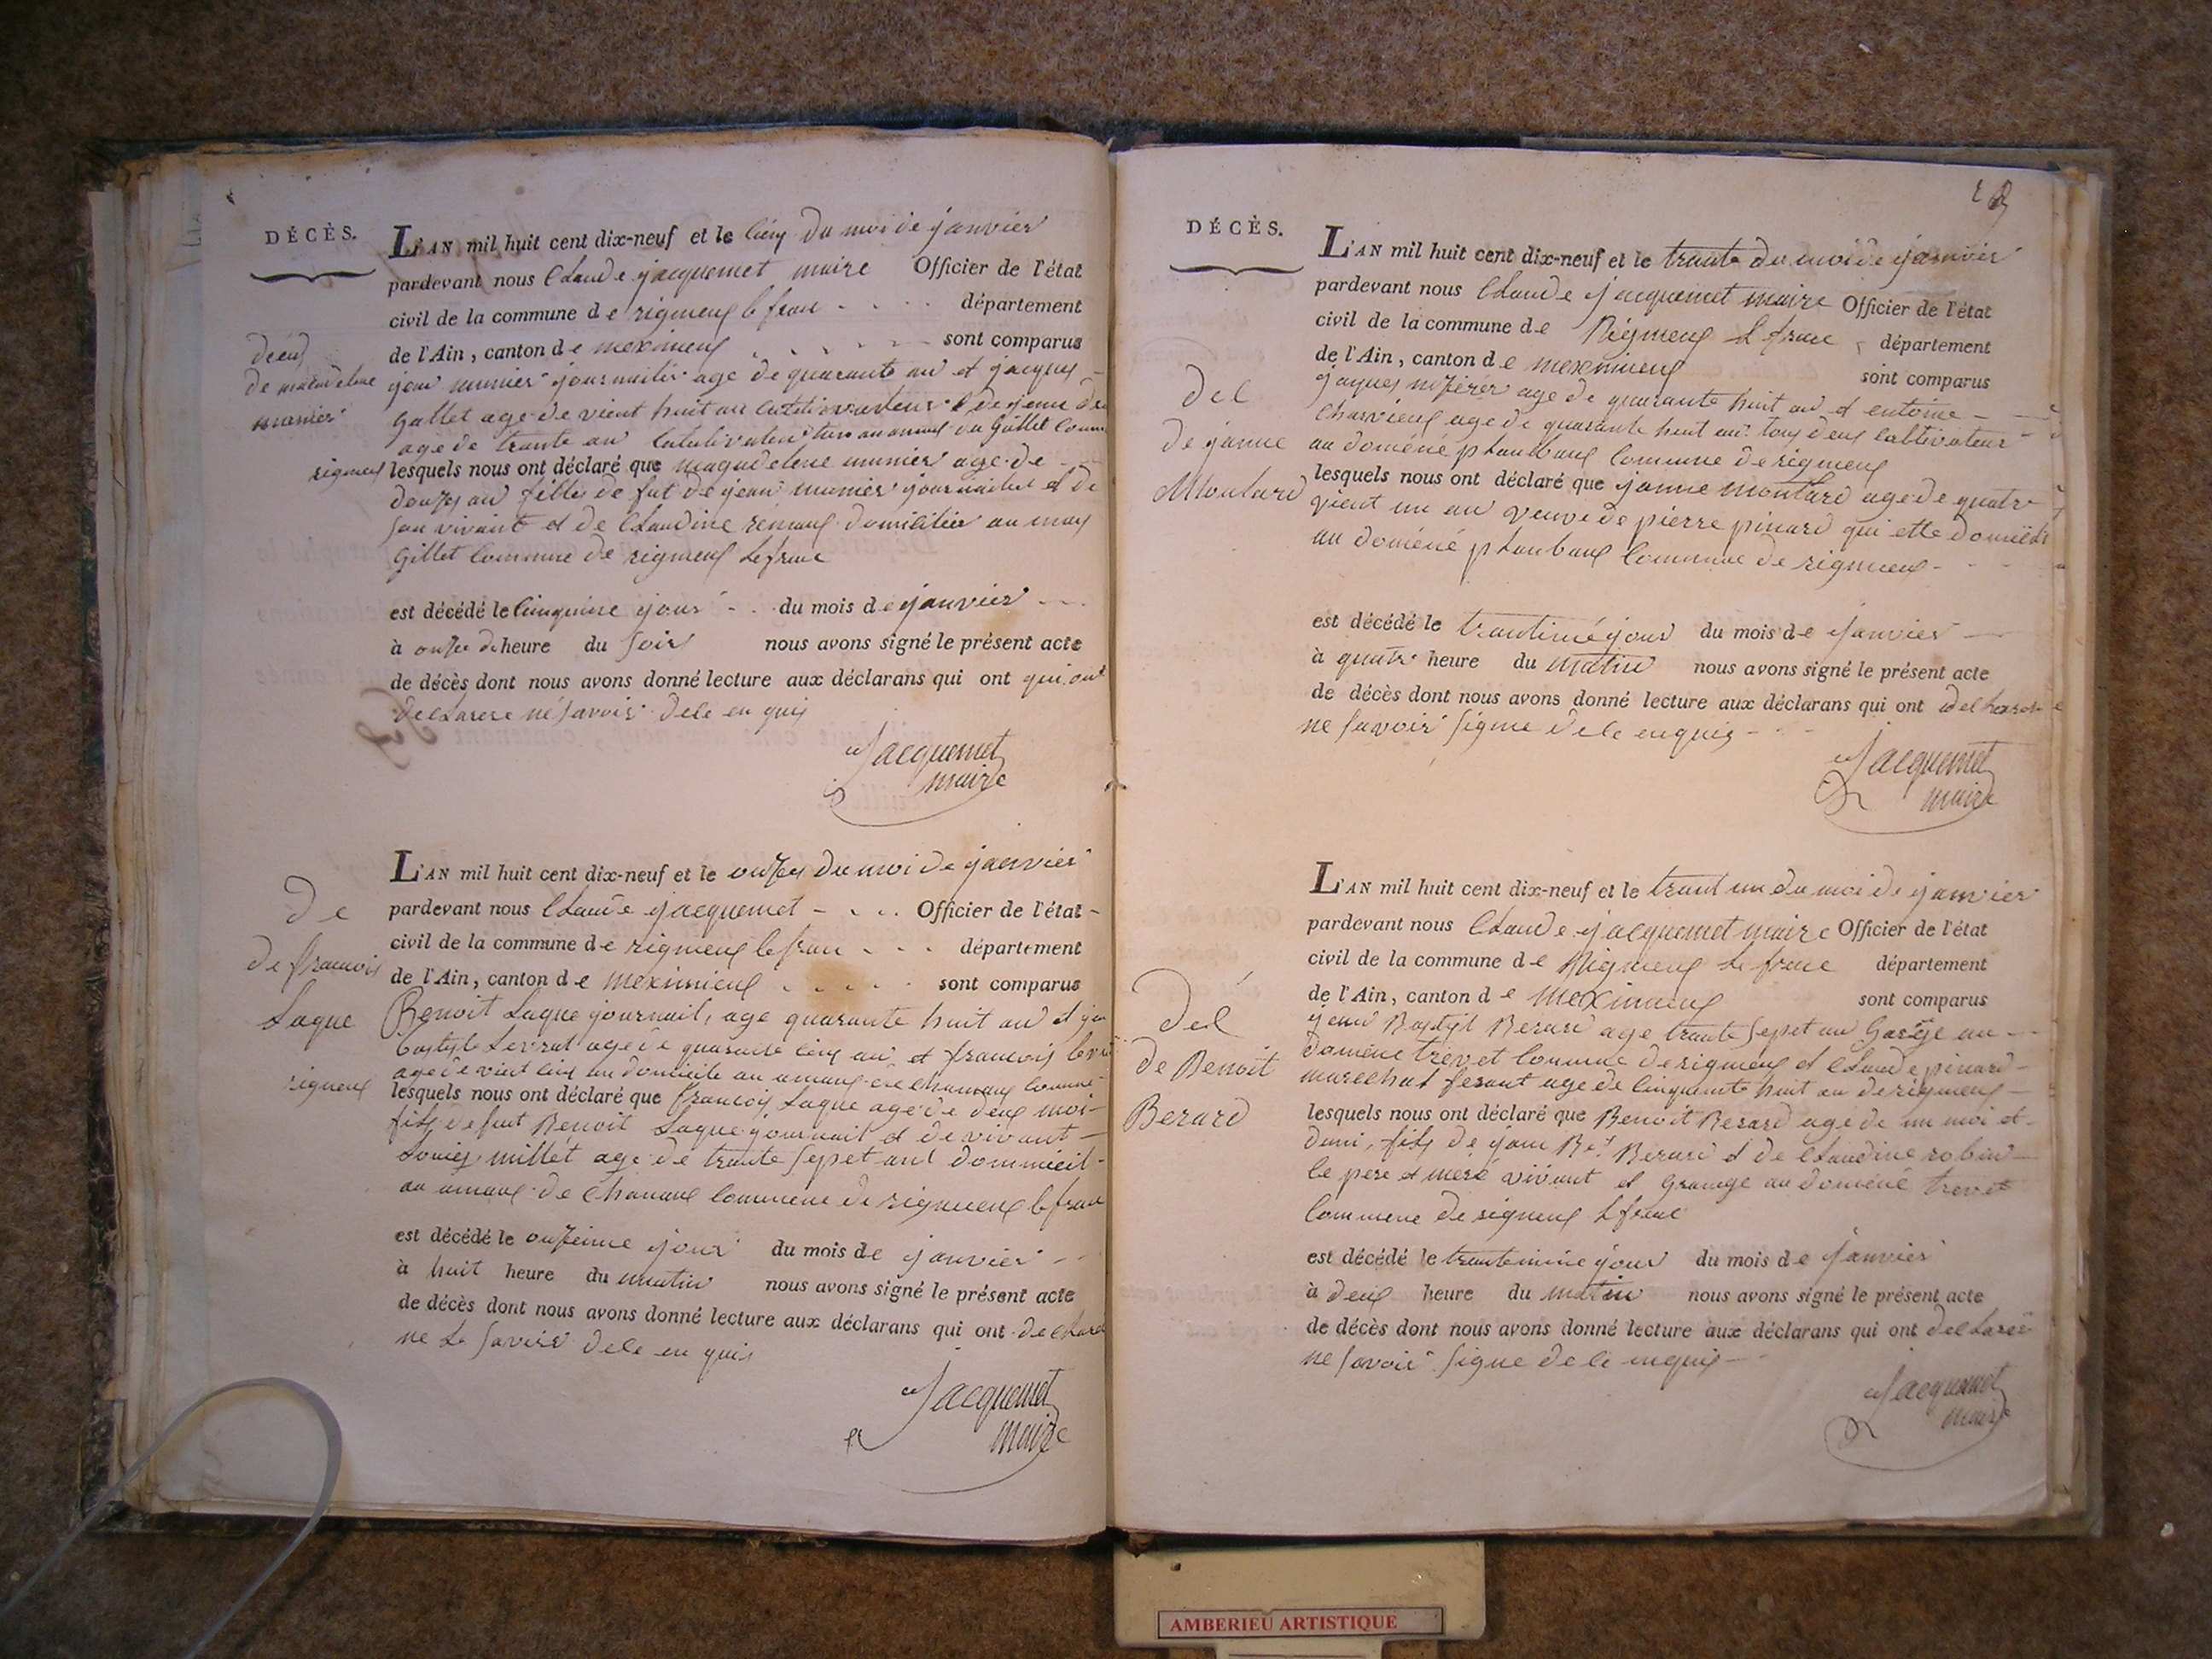 DÉCÈS.
L'AN mil huit cent dix-neuf et le cinq du moi de janvier
pardevant nous Claude jacquemet maire Officier de l'état
civil de la commune de rigneux le franc département
de l'Ain, canton de meximieux sont comparus
décès
de
munier
rigneux
jean munier journalier age de quarante an et jacques
Gallet age de vient huit an cultivateur
age de trante an
lesquels nous ont déclaré que magdelene munier age de
fille de fut de jean munier journalier et de
son vivant et de Claudine domicilier au
Gillet Commune de rigneux le franc
est décédé le cinquime jour du mois de janvier
à onze heure du soir nous avons signé le présent acte
de décès dont nous avons donné lecture aux déclarans qui ont qui ont
declarere né savoir dele en quis
Jacquemet
maire
L'AN mil huit cent dix-neuf et le onzes du moi de janvier
pardevant nous Claude jacquemet Officier de l'état
civil de la commune de rigneux le franc département
de l'Ain, canton de meximieux sont comparus
De
de francois
Laque
rigneux
Benoit Laque journail, age quarante huit an et
Levrat age de quarante cinq an et francois
age de vint cinq an domicile au
lesquels nous ont déclaré que francois Laque age de deux moi
fils de fut Benoit Laque journail et de vivant
millet age de trante sepet ant dommicil
au de Chanaux Commune de rigneux le franc
est décédé le onzieme jour du mois de janvier
à huit heure du matin nous avons signé le présent acte
de décès dont nous avons donné lecture aux déclarans qui ont
ne savoir dele en quis
Jacquemet
maire
DÉCÈS.
L'AN mil huit cent dix-neuf et le trante du moi de janvier
pardevant nous Claude jacquemet maire Officier de l'état
civil de la commune de Rigneux le franc département
de l'Ain, canton de meximieux sont comparus
del
de janne
Moutard
jaques age de quarante huit an et entoine
Charvieux age de quarante huit an tous deux cultivateur
au doméné commune de rigneux
lesquels nous ont déclaré que janne moutard age de quatre
vient un an veuve de pierre pinard qui ette
au doméné Commune de rigneux
est décédé le trantiméjour du mois de janvier
à quatre heure du matin nous avons signé le présent acte
de décès dont nous avons donné lecture aux déclarans qui ont
ne savoir signe dele enquis
Jacquemet
maire
L'AN mil huit cent dix-neuf et le trant un du moi de janvier
pardevant nous Claude jacquemet maire Officier de l'état
civil de la commune de Rigneux le franc département
de l'Ain, canton de Meximieux sont comparus
del
de Benoit
Berard
jean Berard age trante sepet an au
doméne trevet commune de rigneux et Claude pinard
marechal ferant age de cinquante huit an de rigneux
lesquels nous ont déclaré que Benoit Berard age de un moi et
demi, fils de jean Bt Berard et de Claudine robin
le pere et meré vivant et Grange au doméné trevet
Commune de rigneux le franc
est décédé le trantunime jour du mois de janvier
à deux heure du matin nous avons signé le présent acte
de décès dont nous avons donné lecture aux déclarans qui ont
ne savoir signe dele
Jacquemet
maire
AMBERIEU ARTISTIQUE